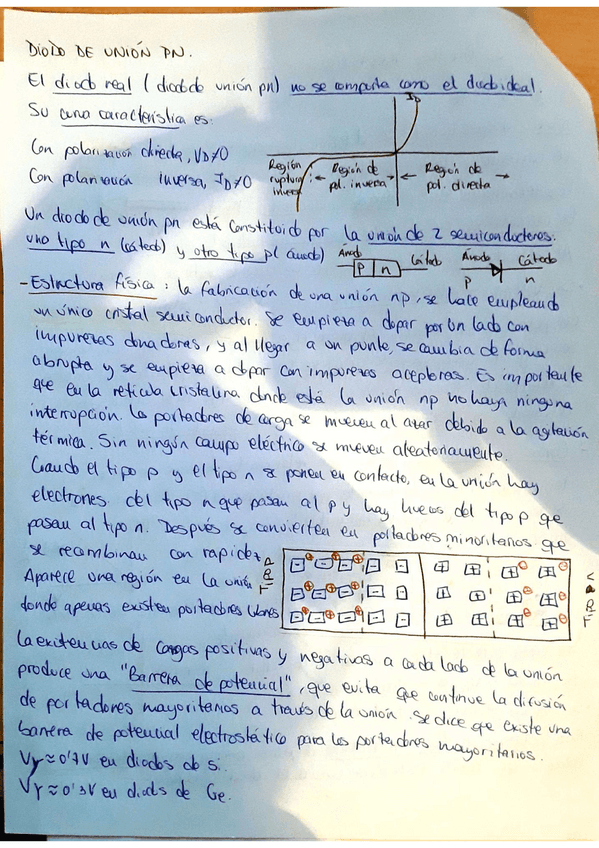 DIODO DE UNIÓN PN.
El diodo real (diodo de unión pn) no se comporta como el diodo ideal.
Su curva característica es:
I_D
Con polarización directa, V_D≠0
Con polarización inversa, I_D≠0
Región ruptura inversa
Región de pol. inversa
Región de pol. directa
Un diodo de unión pn está constituido por la unión de 2 semiconductores.
uno tipo n (cátodo) y otro tipo p (ánodo)
Ánodo p n Cátodo
Ánodo Cátodo
p n
- Estructura física: la fabricación de una unión np, se hace empleando
un único cristal semiconductor. Se empieza a dopar por un lado con
impurezas donadoras, y al llegar a un punto, se cambia de forma
abrupta y se empieza a dopar con impurezas aceptoras. Es importante
que en la retícula cristalina donde está la unión np no haya ninguna
interrupción. Los portadores de carga se mueven al azar debido a la agitación
térmica. Sin ningún campo eléctrico se mueven aleatoriamente.
Cuando el tipo p y el tipo n se ponen en contacto, en la unión hay
electrones del tipo n que pasan al p y hay huecos del tipo p que
pasan al tipo n. Después se convierten en portadores minoritarios que
se recombinan con rapidez
Aparece una región en la unión
donde apenas existen portadores libres
La existencias de cargas positivas y negativas a cada lado de la unión
produce una "Barrera de potencial", que evita que continue la difusión
de portadores mayoritarios a través de la unión. Se dice que existe una
barrera de potencial electrostático para los portadores mayoritarios.
Vγ≈0'7V en diodos de Si.
Vγ≈0'3V en diodos de Ge.